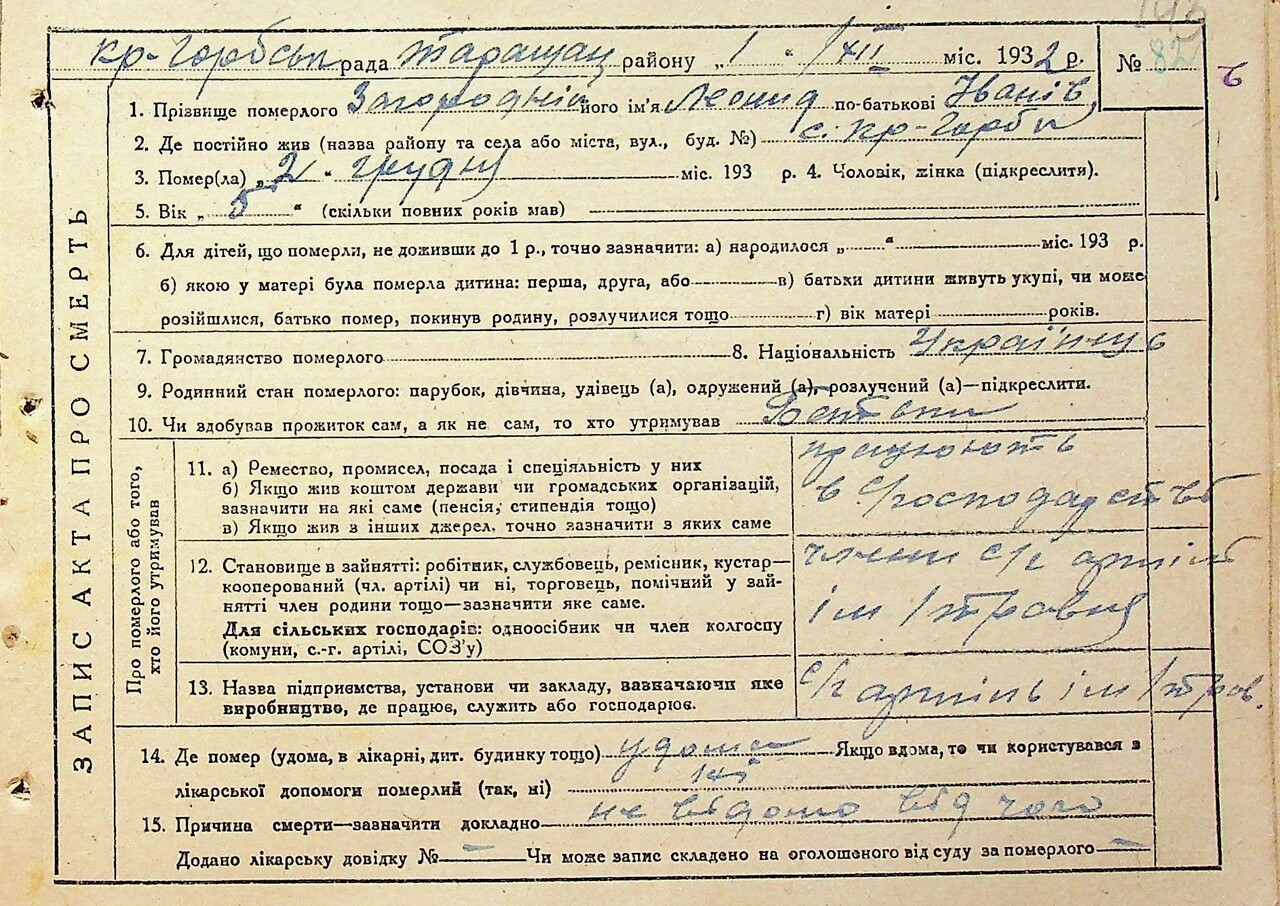 кр-Горбськ рада Таращан району „ 1 “ /XII міс. 1932 р. №
82
ЗАПИС АКТА ПРО СМЕРТЬ
1. Прізвище померлого Загородній його ім'я Леонид по-батькові Іванів
2. Де постійно жив (назва району та села або міста, вул., буд. №) с. Кр-Горби
3. Помер(ла) „ 2 “ грудня міс. 193 р. 4. Чоловік, жінка (підкреслити).
5. Вік „ 5 “ (скільки повних років мав)
6. Для дітей, що померли, не доживши до 1 р., точно зазначити: а) народилося „ “ міс. 193 р.
б) якою у матері була померла дитина: перша, друга, або в) батьки дитини живуть укупі, чи може
розійшлися, батько помер, покинув родину, розлучилися тощо г) вік матері років.
7. Громадянство померлого 8. Національність Українец
9. Родинний стан померлого: парубок, дівчина, удівець (а), одружений (а), розлучений (а)—підкреслити.
10. Чи здобував прожиток сам, а як не сам, то хто утримував Батьки
Про померлого або того,
хто його утримував
11. а) Ремество, промисел, посада і спеціяльність у них
б) Якщо жив коштом держави чи громадських організацій,
зазначити на які саме (пенсія, стипендія тощо)
в) Якщо жив з інших джерел, точно зазначити з яких саме
працюють
в с/господарстві
12. Становище в зайнятті: робітник, службовець, ремісник, кустар—
кооперований (чл. артілі) чи ні, торговець, помічний у зай-
нятті член родини тощо—зазначити яке саме.
Для сільських господарів: одноосібник чи член колгоспу
(комуни, с.-г. артілі, СОЗ'у)
члени с/г артілі
ім 1 травня
13. Назва підприємства, установи чи закладу, зазначаючи яке
виробництво, де працює, служить або господарює.
с/г артіль ім 1 трав.
14. Де помер (удома, в лікарні, дит. будинку тощо) удома Якщо вдома, то чи користувався з
лікарської допомоги померлий (так, ні) ні
15. Причина смерти—зазначити докладно не відомо від чого
Додано лікарську довідку № — Чи може запис складено на оголошеного від суду за померлого —